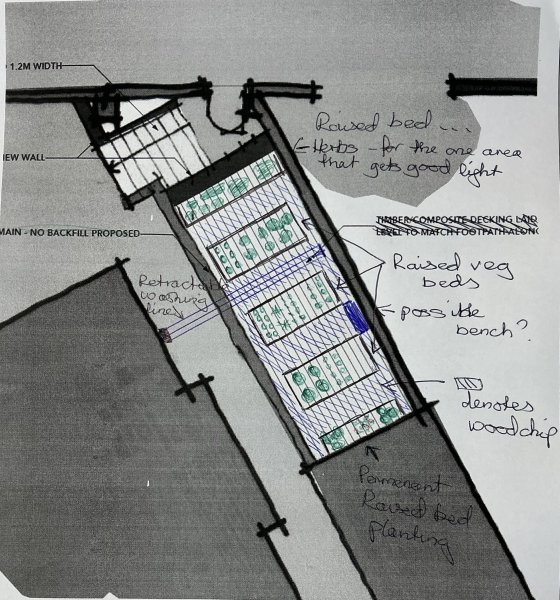 1.2M WIDTH
Raised bed ...
Herbs - for the one area
that gets good
light
IEW WALL
TIMBER/COMPOSITE DECKING LAID
LEVEL TO MATCH FOOTPATH ALONG
MAIN - NO BACKFILL PROPOSED
Raised veg
beds
Retractable
washing
lines
possible
bench?
denotes
woodchip
Permenant
Raised bed
planting